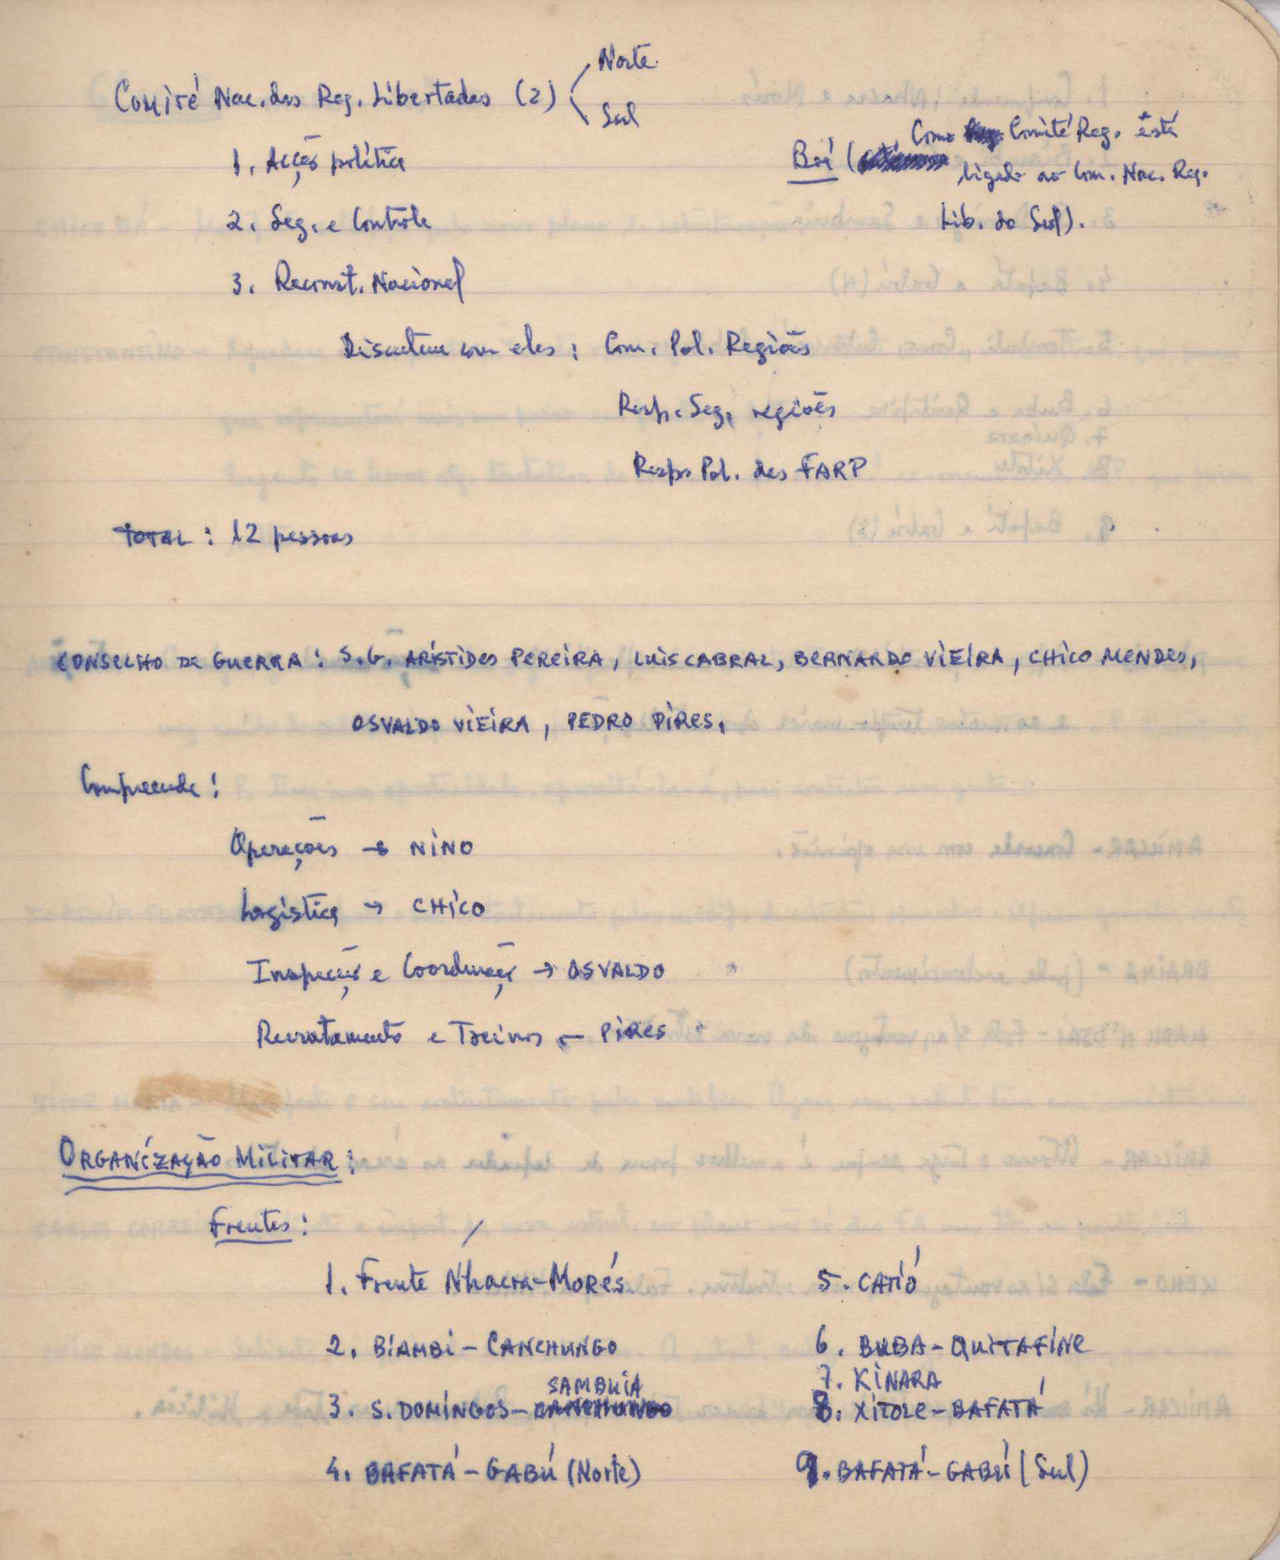 Comité Nac. das Reg. Libertadas (2)
Norte
Sul
1. Acção política
2. Seg. e Controle
3. Reconst. Nacional
Boé (Como Comité Reg. está
ligado ao Com. Nac. Reg.
Lib. do Sul).
Discutem com eles: Com. Pol. Regiões
Resp. Seg. regiões
Resp. Pol. das FARP
TOTAL: 12 pessoas
CONSELHO DE GUERRA: S.G. ARÍSTIDES PEREIRA, LUIS CABRAL, BERNARDO VIEIRA, CHICO MENDES,
OSVALDO VIEIRA, PEDRO PIRES,
Compreende:
Operações → NINO
Logística → CHICO
Inspecção e Coordenação → OSVALDO
Recrutamento e Treinos – PIRES
ORGANIZAÇÃO MILITAR:
Frentes:
1. Frente Nhacra-Morés
2. BIAMBI - CANCHUNGO
SAMBUIA
3. S. DOMINGOS - CANCHUNGO
4. BAFATÁ - GABÚ (Norte)
5. CATIÓ
6. BUBA - QUITAFINE
7. KINARA
8. XITOLE - BAFATÁ
9. BAFATÁ - GABÚ (Sul)